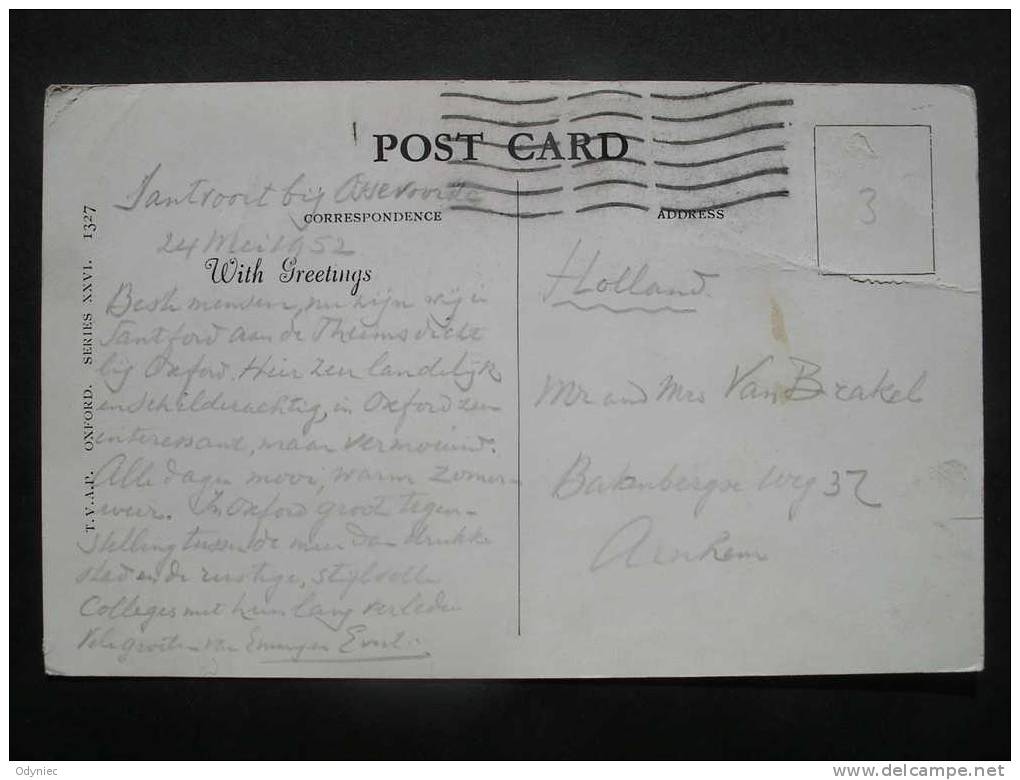 POST CARD
Santvoort bij
CORRESPONDENCE
ADDRESS
24 Mei 1952
With Greetings
T.V.A.P. OXFORD. SERIES XXVI. 1327
Beste mensen, nu zijn wij in
Santford aan de Theems dicht
bij Oxford. Hier zeer landelijk
en schilderachtig, in Oxford zeer
interessant, maar vermoeiend.
Alle dagen mooi, warm zomer-
weer. In Oxford groot tegen-
stelling tussen de meer dan drukke
stad en de rustige, stijlvolle
Colleges met hun lang verleden
Vele groeten van en Evert.
Holland
Mr and Mrs Van Brakel
Bakenbergse weg 37
Arnhem
3
Odyniec
delcampe.net